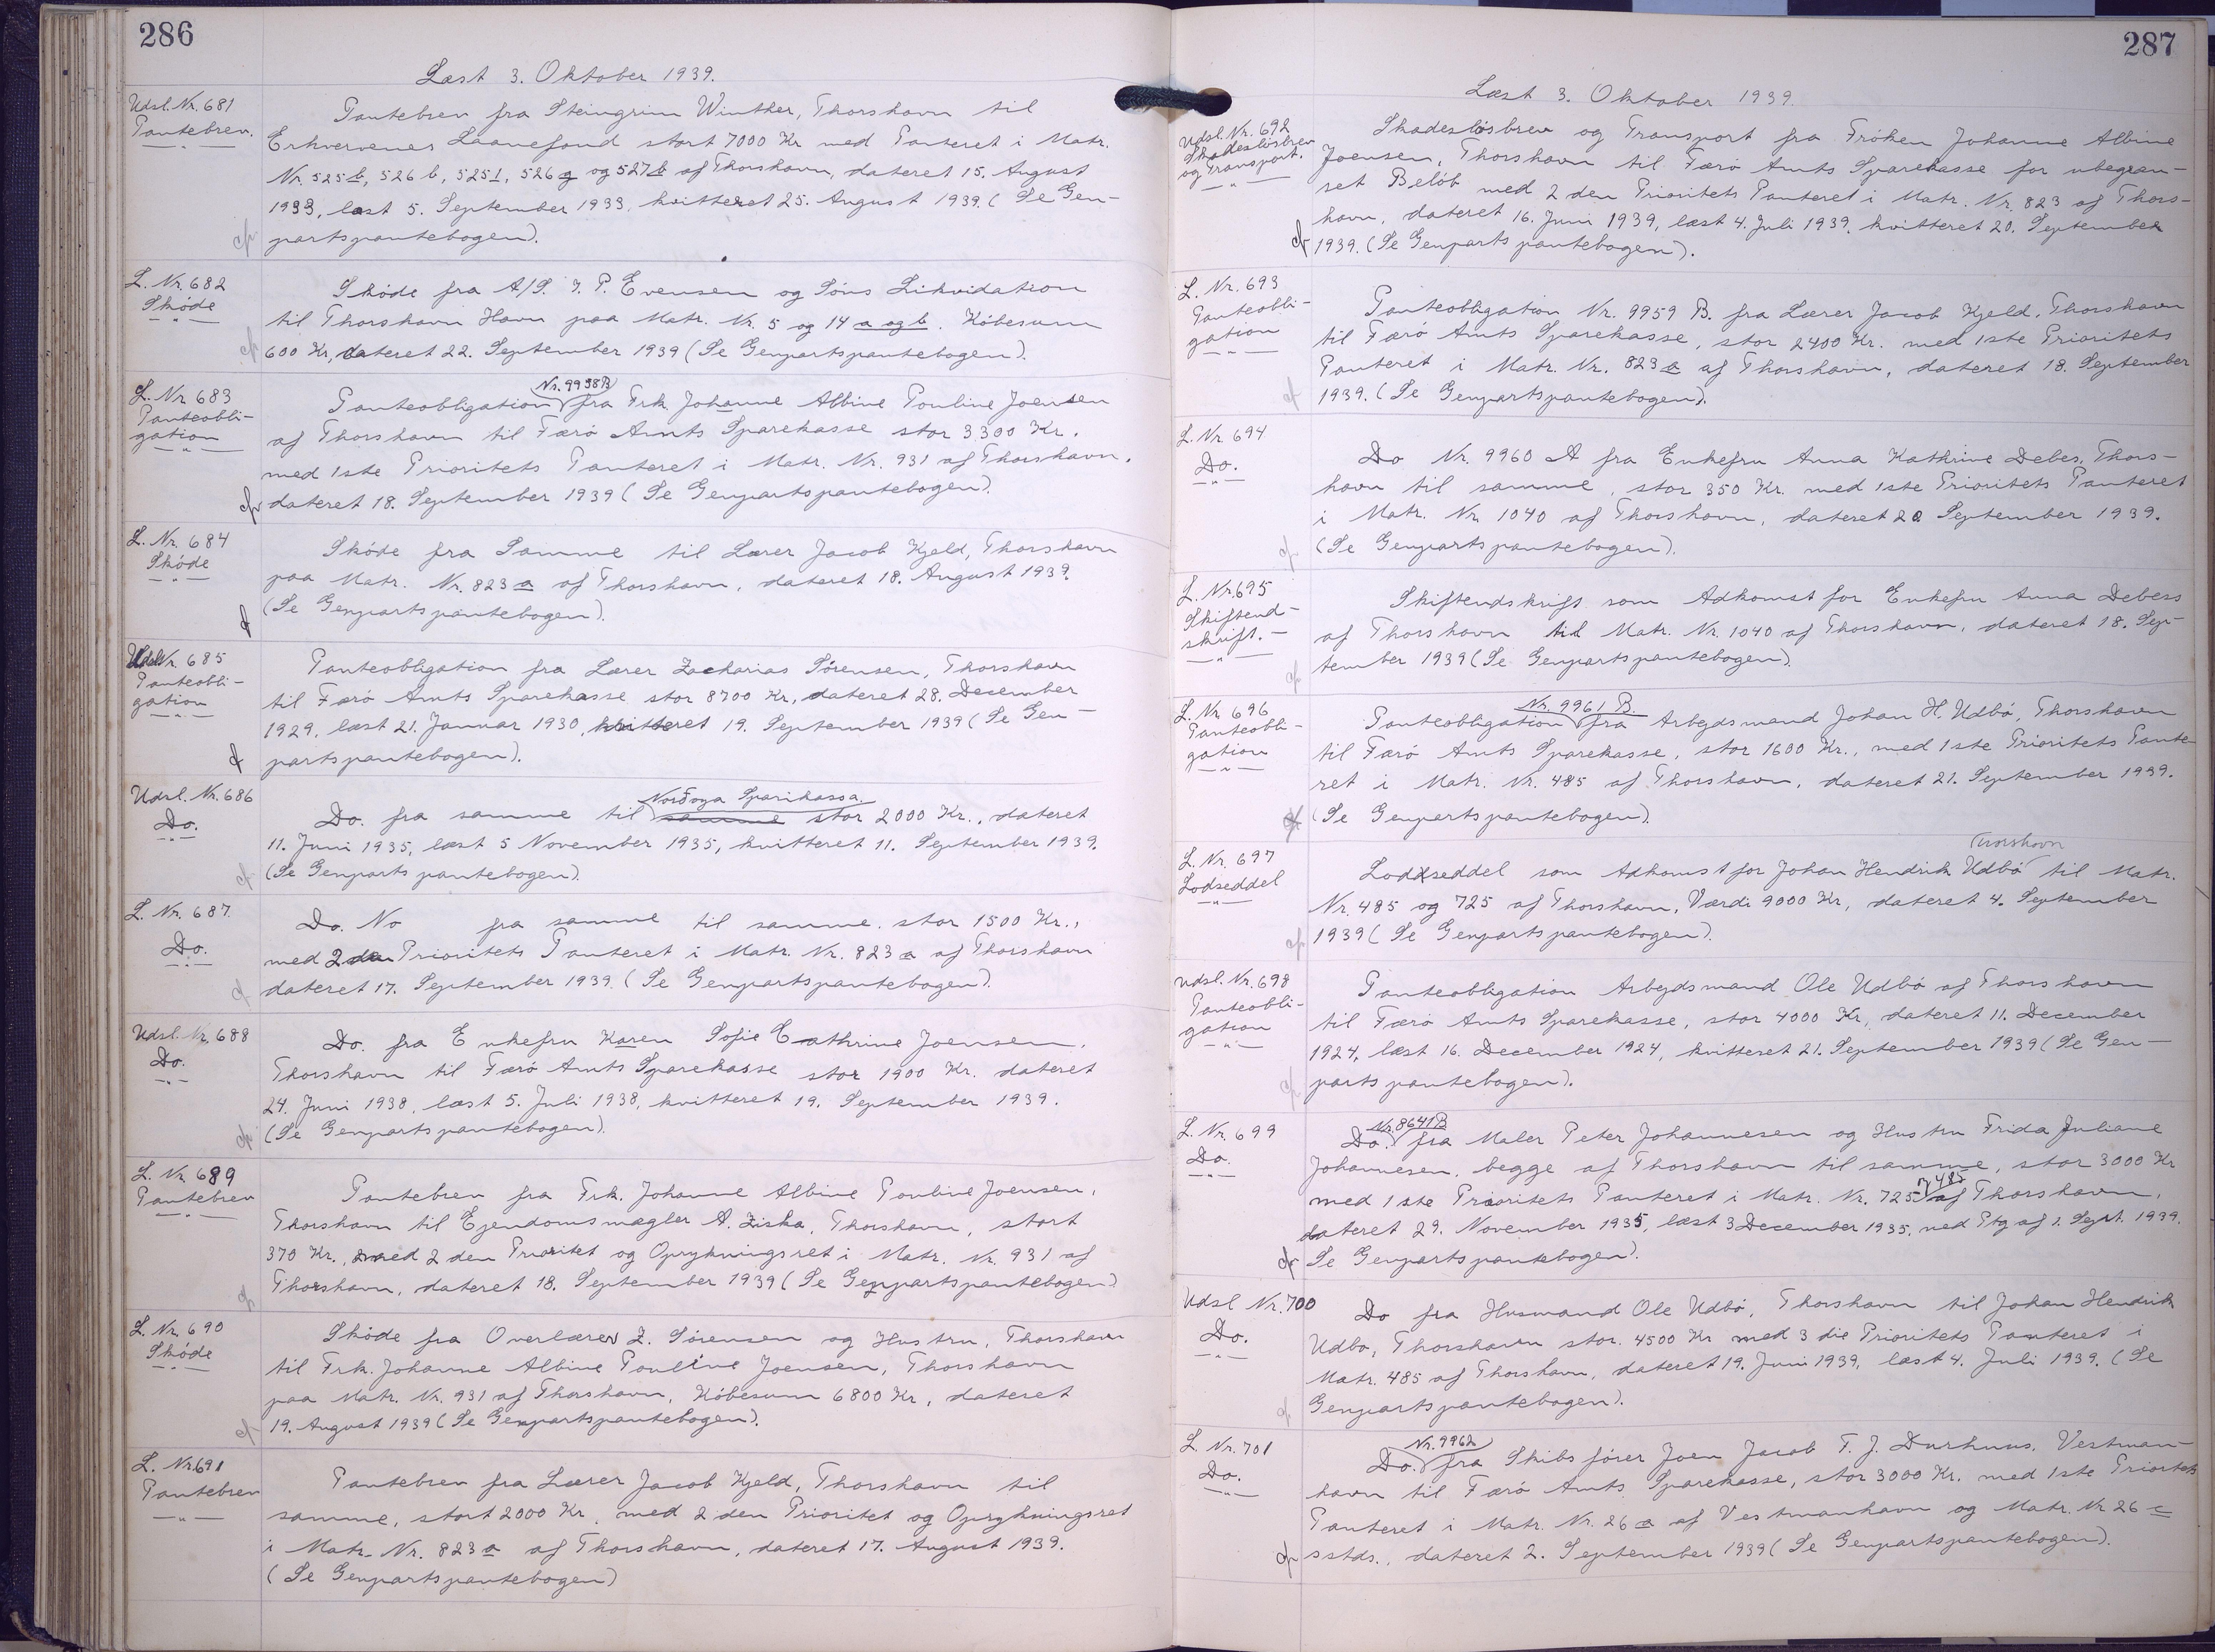 286
Læst 3. Oktober 1939.
Udsl. Nr. 681
Pantebrev.
Pantebrev fra Steingrim Winther, Thorshavn til
Erhvervenes Laanefond stort 7000 Kr med Panteret i Matr.
Nr. 525b, 526 b, 525l, 526g og 527b af Thorshavn, dateret 15. August
1933, læst 5. September 1933, kvitteret 25. August 1939. (Se Gen-
partspantebogen).
L. Nr. 682
Skøde
Skøde fra A/S. J. P. Evensen og Søns Likvidation
til Thorshavn Havn paa Matr. Nr. 5 og 14 a og b. Købesum
600 Kr, dateret 22. September 1939 (Se Genpartspantebogen).
L. Nr 683
Panteobli-
gation
Nr. 9938B
Panteobligation fra Frk. Johanne Albine Pouline Joensen
af Thorshavn til Færø Amts Sparekasse stor 3300 Kr.
med 1ste Prioritets Panteret i Matr. Nr. 931 af Thorshavn.
dateret 18. September 1939 (Se Genpartspantebogen).
L. Nr. 684
Skøde
Skøde fra Samme til Lærer Jacob Kjeld, Thorshavn
paa Matr. Nr. 823 a af Thorshavn, dateret 18. August 1939.
(Se Genpartspantebogen).
Udsl Nr. 685
Panteobli-
gation
Panteobligation fra Lærer Zacharias Sørensen, Thorshavn
til Færø Amts Sparekasse stor 8700 Kr, dateret 28. December
1929, læst 21. Januar 1930, kvitteret 19. September 1939 (Se Gen-
partspantebogen).
Udsl. Nr. 686
Do.
Norðoya Sparikassa.
Do. fra samme til samme stor 2000 Kr., dateret
11. Juni 1935, læst 5 November 1935, kvitteret 11. September 1939.
(Se Genparts pantebogen).
L. Nr. 687.
Do.
Do. No fra samme til samme. stor 1500 Kr.,
med 2 den Prioritets Panteret i Matr. Nr. 823 a af Thorshavn
dateret 17. September 1939. (Se Genpartspantebogen).
Udsl. Nr. 688
Do.
Do. fra Enkefru Karen Sofie Cathrine Joensen.
Thorshavn til Færø Amts Sparekasse stor 1900 Kr. dateret
24. Juni 1938, læst 5. Juli 1938, kvitteret 19. September 1939.
(Se Genpartspantebogen).
L. Nr 689
Pantebrev
Pantebrev fra Frk. Johanne Albine Pouline Joensen,
Thorshavn til Ejendomsmægler A. Ziska, Thorshavn, stort
370 Kr., med 2 den Prioritet og Oprykningsret i Matr. Nr. 931 af
Thorshavn, dateret 18. September 1939 (Se Genpartspantebogen)
L. Nr. 690
Skøde
Skøde fra Overlærer Z. Sørensen og Hustru, Thorshavn
til Frk. Johanne Albine Pouline Joensen, Thorshavn
paa Matr. Nr. 931 af Thorshavn, Købesum 6800 Kr, dateret
19. August 1939 (Se Genpartspantebogen).
L. Nr. 691
Pantebrev
Pantebrev fra Lærer Jacob Kjeld, Thorshavn til
samme, stort 2000 Kr, med 2 den Prioritet og Oprykningsret
i Matr. Nr. 823 a af Thorshavn, dateret 17. August 1939.
(Se Genpartspantebogen)
287
Læst 3. Oktober 1939.
Udsl. Nr. 692
Skadesløsbrev
og Transport.
Skadesløsbrev og Transport fra Frøken Johanne Albine
Joensen, Thorshavn til Færø Amts Sparekasse for ubegræn-
set Beløb med 2 den Prioritets Panteret i Matr. Nr. 823 af Thors-
havn, dateret 16. Juni 1939, læst 4. Juli 1939, kvitteret 20. September
1939. (Se Genparts pantebogen).
L. Nr. 693
Panteobli-
gation
Panteobligation Nr. 9959 B. fra Lærer Jacob Kjeld, Thorshavn
til Færø Amts Sparekasse, stor 2400 Kr. med 1ste Prioritets
Panteret i Matr. Nr. 823 a af Thorshavn, dateret 18. September
1939. (Se Genpartspantebogen).
L. Nr 694
Do.
Do Nr. 9960 A fra Enkefru Anna Kathrine Debes, Thors-
havn til samme, stor 350 Kr. med 1ste Prioritets Panteret
i Matr. Nr. 1040 af Thorshavn, dateret 20 September 1939.
(Se Genpartspantebogen).
L. Nr. 695
Skiftend-
skrift.-
Skiftendskrift som Adkomst for Enkefru Anna Debess
af Thorshavn til Matr. Nr. 1040 af Thorshavn, dateret 18. Sep-
tember 1939 (Se Genpartspantebogen).
L. Nr 696
Panteobli-
gation
Nr. 9961 B.
Panteobligation fra Arbejdsmand Johan H. Udbø, Thorshavn
til Færø Amts Sparekasse, stor 1600 Kr., med 1ste Prioritets Pante-
ret i Matr. Nr. 485 af Thorshavn, dateret 21. September 1939.
(Se Genpartspantebogen).
L. Nr. 697
Lodseddel
Thorshavn
Lodseddel som Adkomst for Johan Hendrik Udbø til Matr.
Nr. 485 og 725 af Thorshavn, Værdi 9000 Kr, dateret 4. September
1939 (Se Genpartspantebogen).
Udsl. Nr. 698
Panteobli-
gation
Panteobligation Arbejdsmand Ole Udbø af Thorshavn
til Færø Amts Sparekasse, stor 4000 Kr, dateret 11. December
1924, læst 16. December 1924, kvitteret 21. September 1939 (Se Gen-
parts pantebogen).
L. Nr. 699
Do.
Nr. 8641 B
Do. fra Maler Peter Johannesen og Hustru Frida Juliane
Johannesen, begge af Thorshavn til samme, stor 3000 Kr
og 485
med 1 ste Prioritets Panteret i Matr. Nr. 725 af Thorshavn,
dateret 29. November 1935, læst 3 December 1935, med Ptg af 1. Sept. 1939.
Se Genpartspantebogen).
Udsl Nr. 700
Do.
Do fra Husmand Ole Udbø, Thorshavn til Johan Hendrik
Udbø, Thorshavn stor. 4500 Kr med 3 die Prioritets Panteret i
Matr. 485 af Thorshavn, dateret 19. Juni 1939, læst 4. Juli 1939. (Se
Genpartspantebogen).
L. Nr. 701
Do.
Nr. 9962
Do. fra Skibsfører Joen Jacob F. J. Durhuus, Vestman-
havn til Færø Amts Sparekasse, stor 3000 Kr. med 1ste Prioritets
Panteret i Matr. Nr. 26 a af Vestmanhavn og Matr. Nr 26 c
sstds., dateret 2. September 1939 (Se Genpartspantebogen).